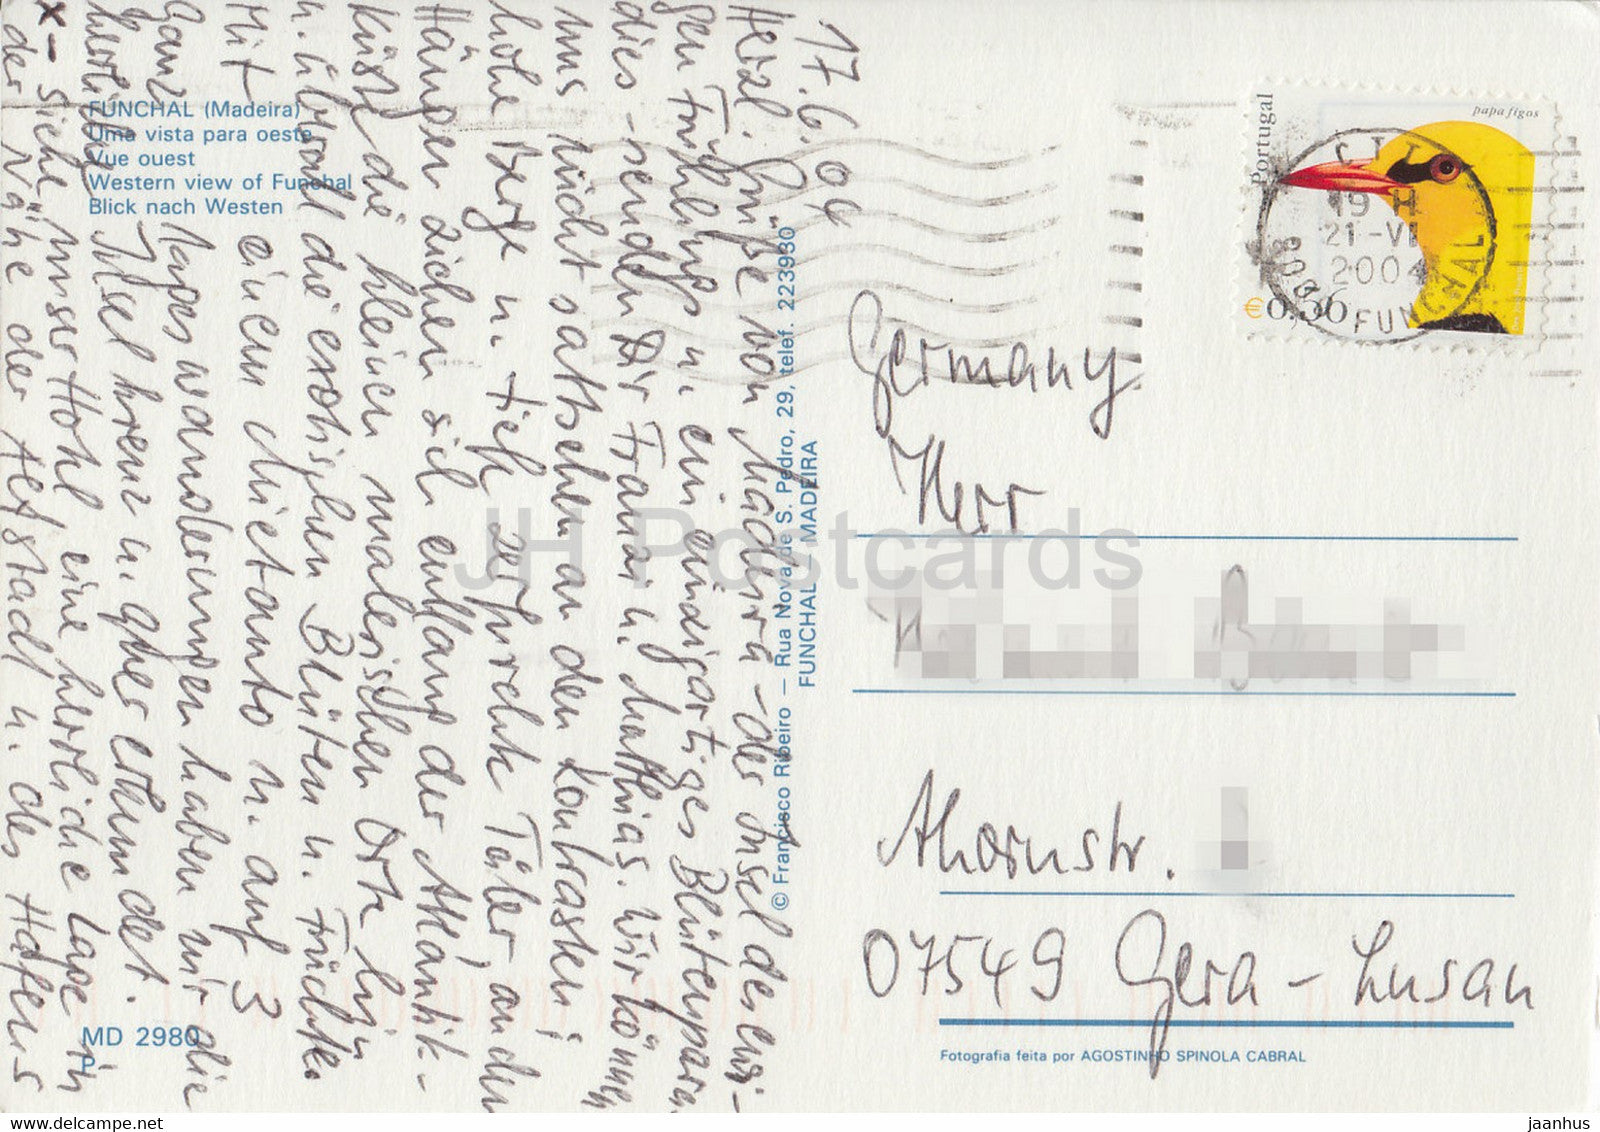 17.6.04
Herzl. Grüße von Madeira - der Insel des ewi-
gen Frühlings u. ein einzigartiges Blütenpara-
dies - senden Dir Franzi u. Matthias. Wir können
uns nicht sattsehen an den Kontrasten;
hohe Berge u. tief zerfurchte Täler, an den
Hängen ziehen sich entlang der Atlantik-
Küste die kleinen malerischen Orte hin
u. überall die exotischen Blüten u. Früchte.
Mit einem Mietauto u. auf 3
Ganztageswanderungen haben wir die
herrliche Insel kreuz u. quer erkundet.
x- siehe, unser Hotel eine herrliche Lage in
der Nähe der Altstadt u. des Hafens
FUNCHAL (Madeira)
Uma vista para oeste
Vue ouest
Western view of Funchal
Blick nach Westen
MD 2980
P
© Francisco Ribeiro — Rua Nova de S. Pedro, 29, telef. 223980
FUNCHAL - MADEIRA
Portugal
papa figos
€0,56
CTT
19 H
21-VI
2004
FUNCHAL
Germany
Herr
Ahornstr.
07549 Gera - Lusan
Fotografia feita por AGOSTINHO SPINOLA CABRAL
JH Postcards
www.delcampe.net
jaanhus